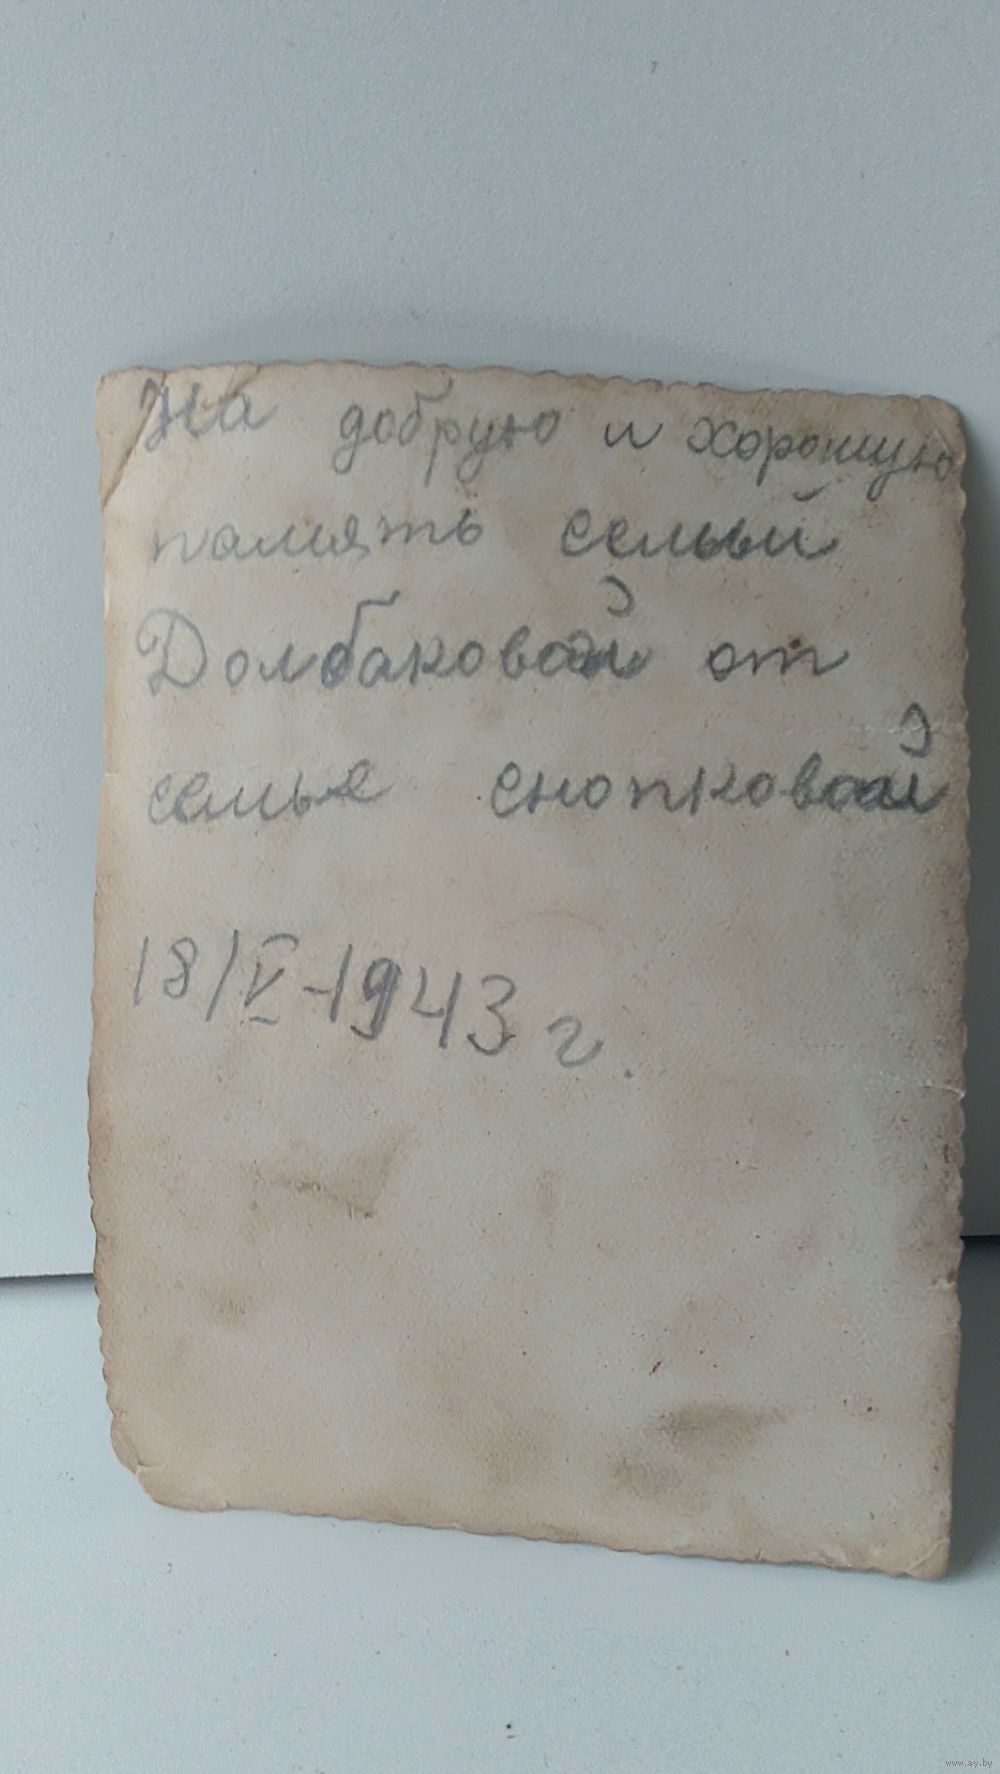 На добрую и хорошую
память семьи
Долбаковой от
семье снопковой
18/V-1943 г.
www.ay.by